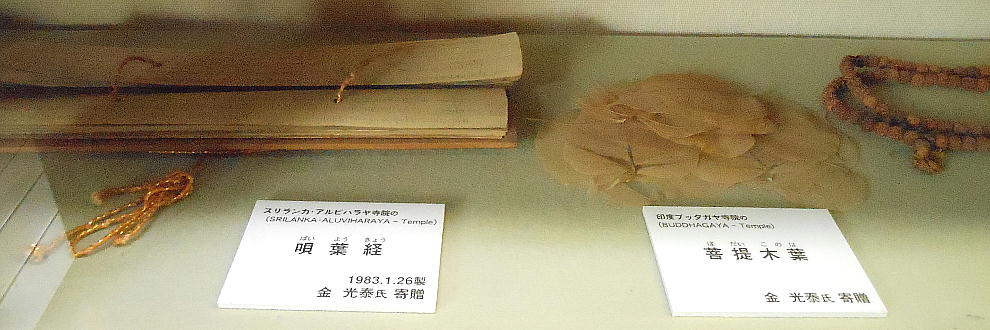 スリランカ・アルビハラヤ寺院の
(SRILANKA・ALUVIHARAYA – Temple)
ばい よう きょう
唄葉経
1983.1.26製
金 光泰氏 寄贈
印度ブッタガヤ寺院の
(BUDDHAGAYA – Temple)
ぼ だい この は
菩提木葉
金 光泰氏 寄贈